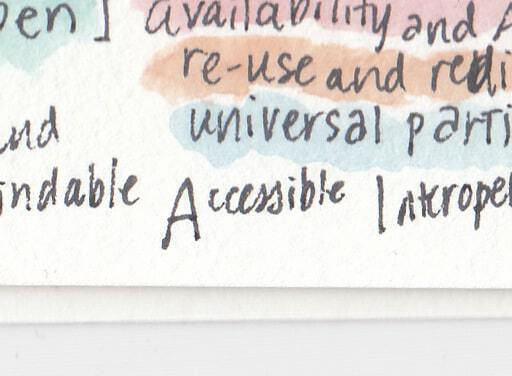 pen] availability and A
re-use and redi
and universal parti
indable Accessible Interoper